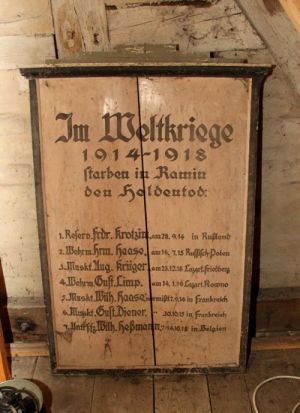 Im Weltkriege
1914-1918
starben in Ramin
den Heldentod:
1. Reserv. Frdr. Krotzin, am 28. 9. 14 in Rußland
2. Wehrm. Hrm. Haase, am 14. 7. 15 Russisch-Polen
3. Muskt. Aug. Krüger, am 23. 12. 18 Lazart. Friedberg
4. Wehrm. Gust. Limp. am 14. 1. 16 Lazart. Kowno
5. Muskt. Wilh. Haase, vermißt 7. 9. 14 in Frankreich
6. Muskt. Gust. Diener, " 30. 10. 17 in Frankreich
7. Wilh. Heßmann, " 14. 10. 18 in Belgien